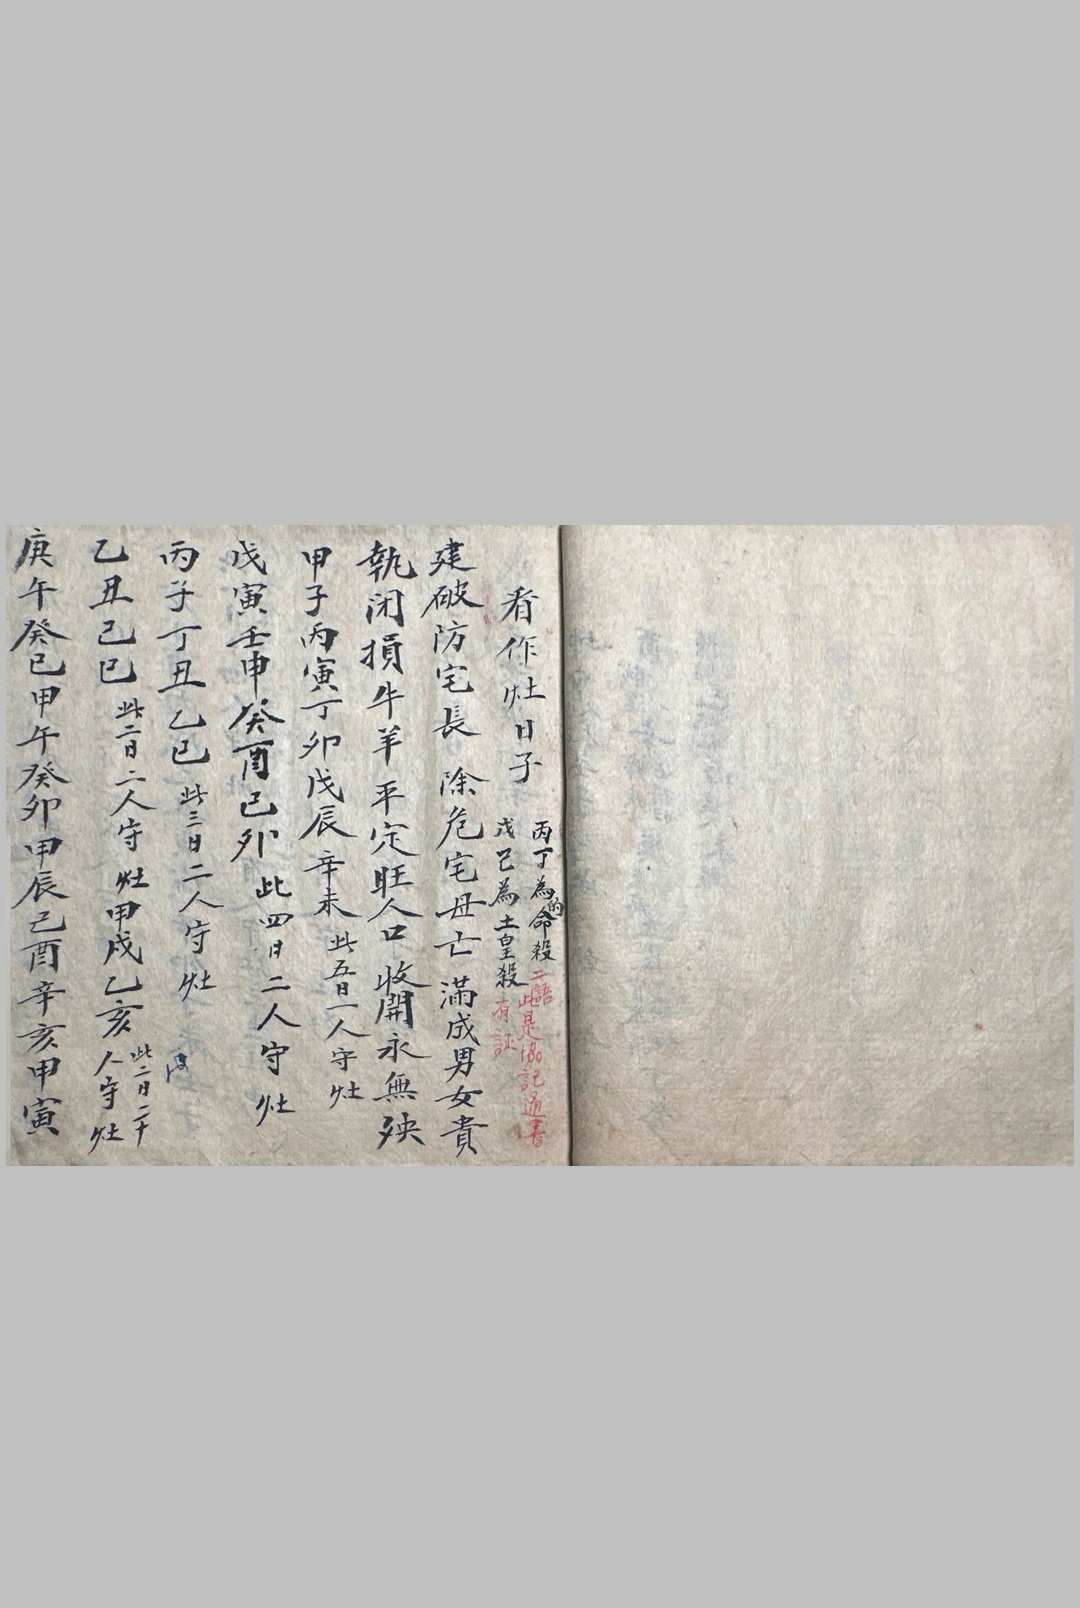 看作灶日子
丙丁為的命殺
戊己為土皇殺
二語此是 記通書
有証
建破防宅長 除危宅母亡 滿成男女貴
執闭損牛羊 平定旺人口 收開永無殃
甲子丙寅丁卯戊辰辛未 此五日一人守灶
戊寅壬申癸酉己卯 此四日二人守灶
丙子丁丑乙巳 此三日二人守灶
乙丑己巳 此二日二人守灶 甲戌乙亥 此二日二十人守灶
庚午癸巳甲午癸卯甲辰己酉辛亥甲寅